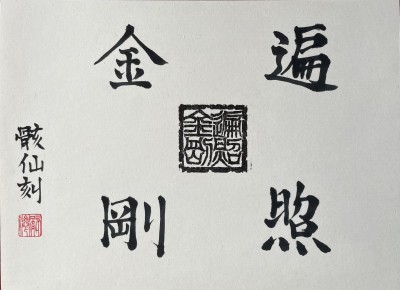 遍照
金剛
遍照
金剛
骸仙刻